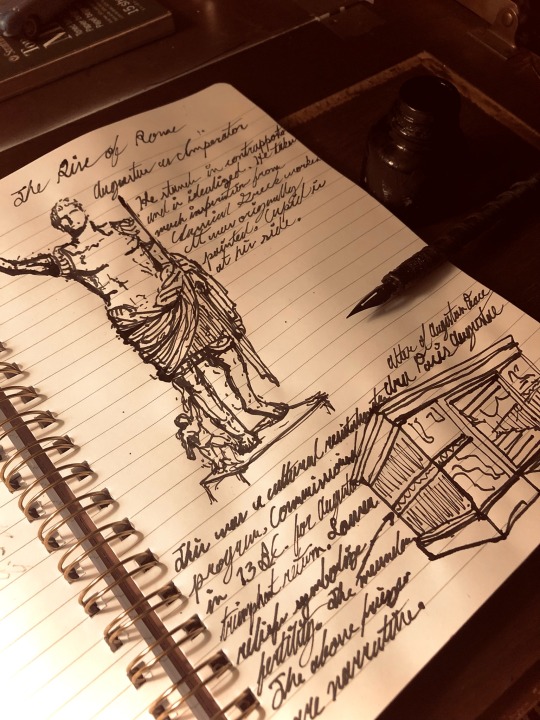 The Rise of Rome
Augustus as Imperator
He stands in contrapposto
and is idealized. He takes
much inspiration from
Classical Greek works.
It was originally
painted. Cupid is
at his side.
altar of Augustan Peace
Ara Pacis Augustae
This was a cultural
program. Commissioned
in 13 B.C. for Augustus
triumphant return. Lower
reliefs symbolize
fertility. The meander
The above friezes
are narrative.